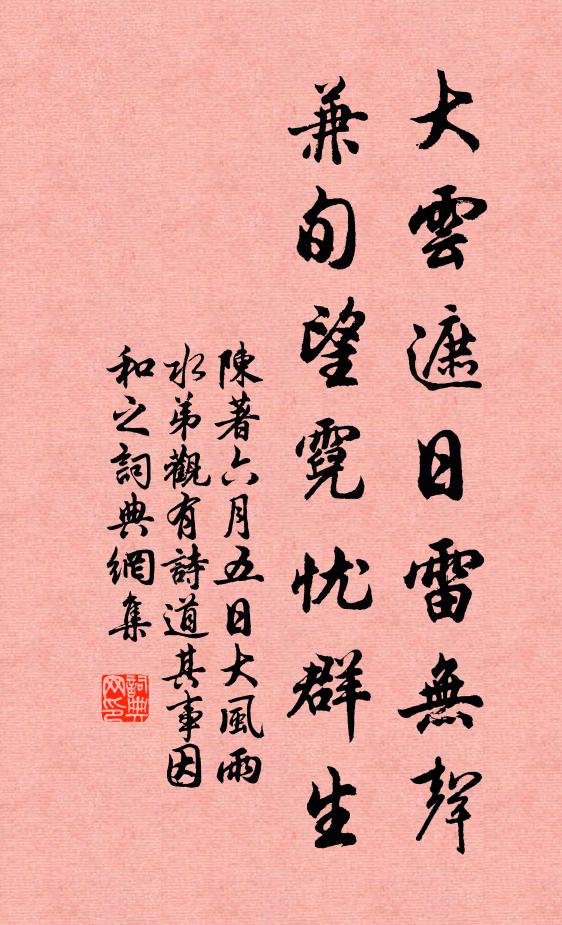 大雲遮日雷無聲
兼旬望霓忧群生
陳著六月五日大風雨
水弟觀有詩道其事因
和之詞典網集
詞典網印